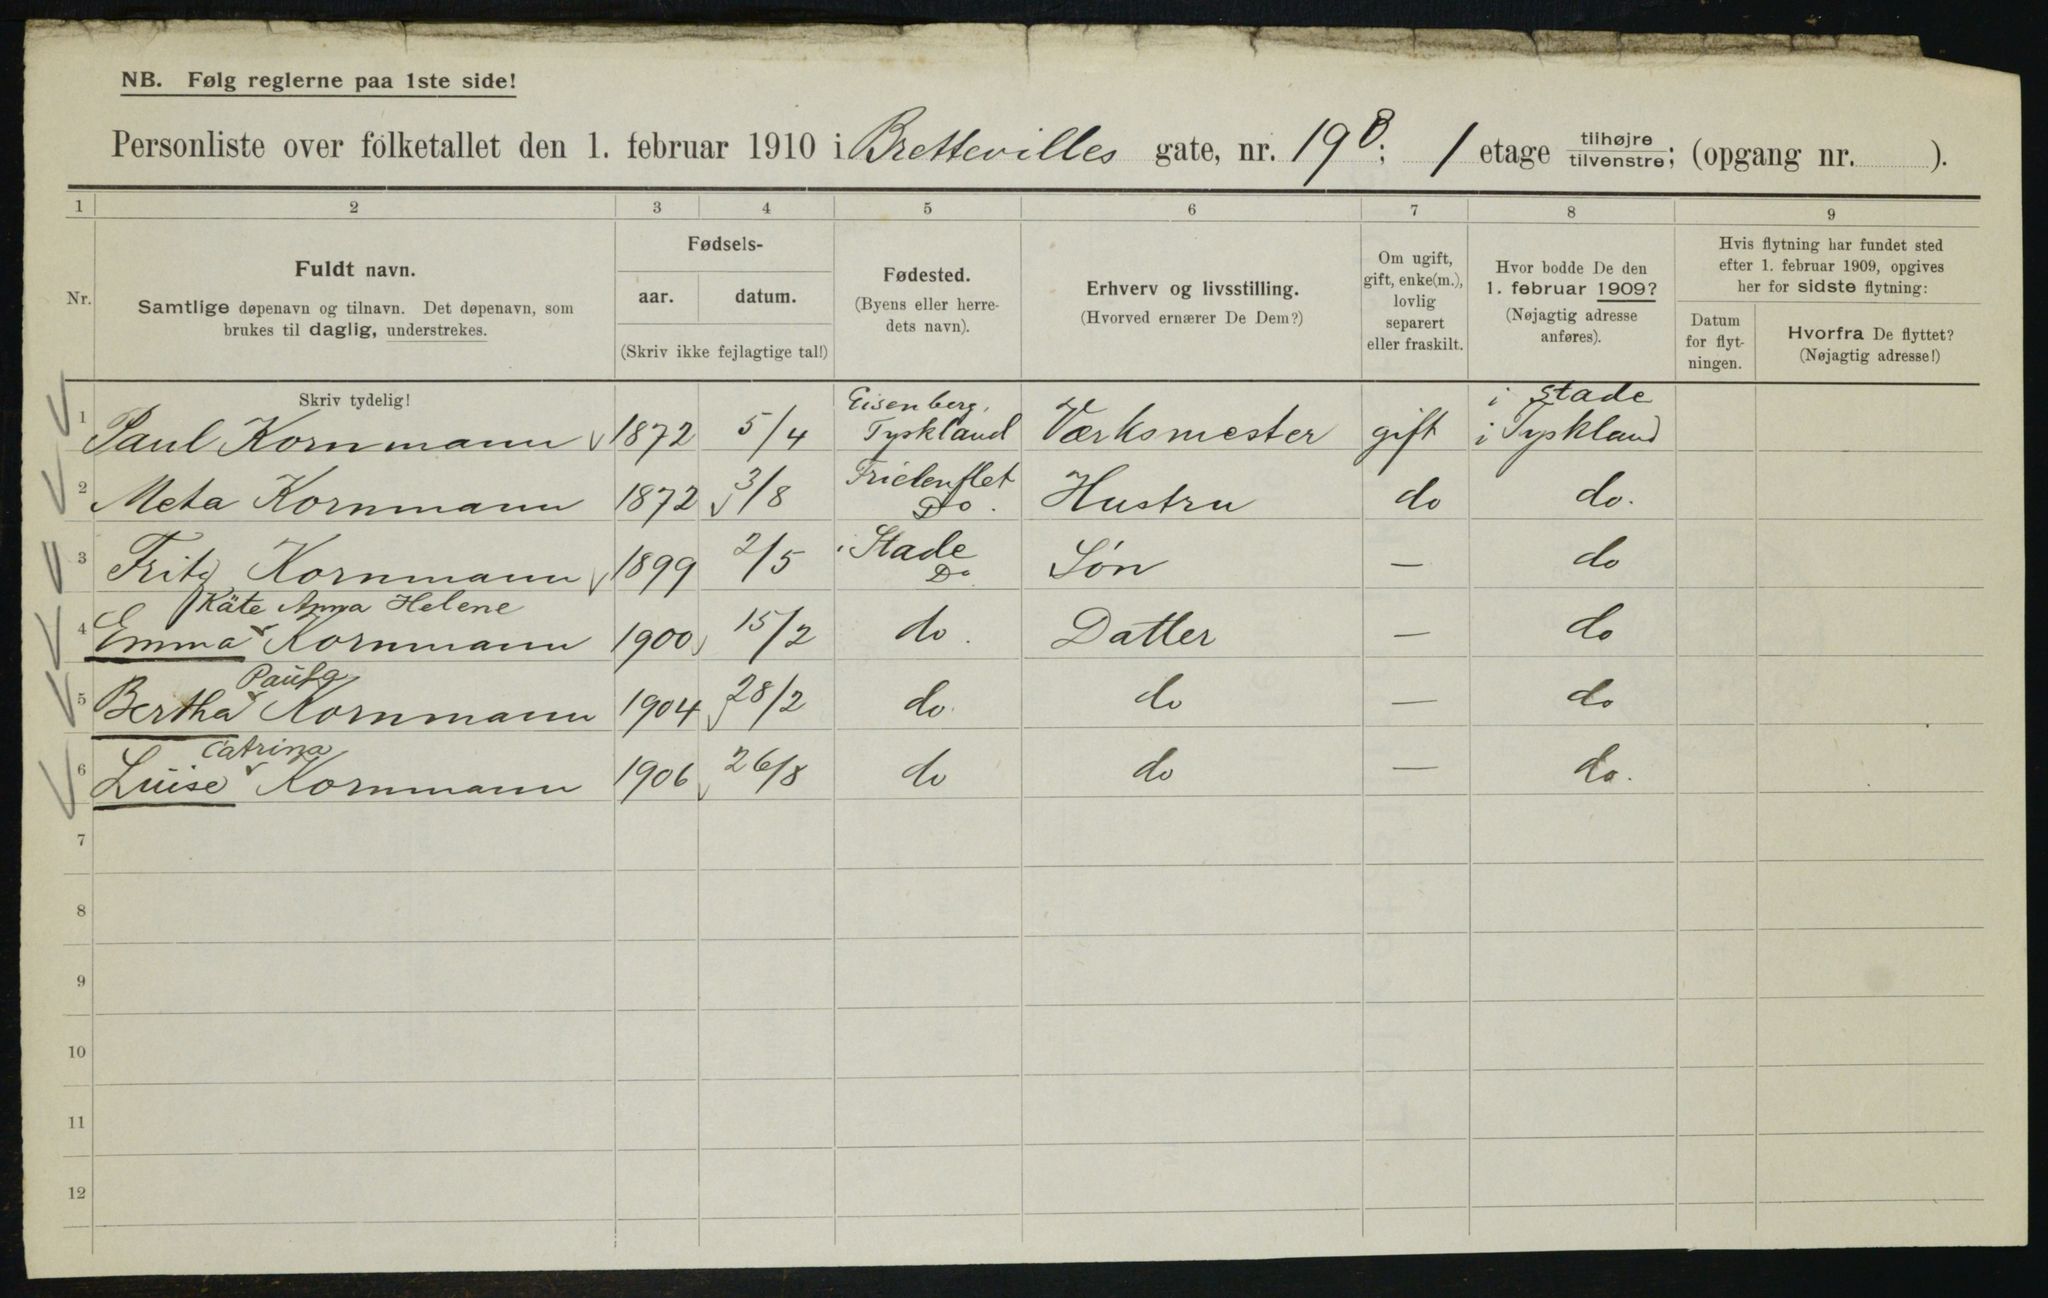 NB. Følg reglerne paa 1ste side!
Personliste over folketallet den 1. februar 1910 i Brettevilles gate, nr. 19 B; 1 etage tilhøjre tilvenstre; (opgang nr. ).
1 2 3 4 5 6 7 8 9
Nr.
Fuldt navn.
Samtlige døpenavn og tilnavn. Det døpenavn, som
brukes til daglig, understrekes.
Fødsels-
aar. datum.
(Skriv ikke fejlagtige tal!)
Fødested.
(Byens eller herre-
dets navn).
Erhverv og livsstilling.
(Hvorved ernærer De Dem?)
Om ugift,
gift, enke(m.),
lovlig
separert
eller fraskilt.
Hvor bodde De den
1. februar 1909?
(Nøjagtig adresse
anføres).
Hvis flytning har fundet sted
efter 1. februar 1909, opgives
her for sidste flytning:
Datum
for flyt-
ningen.
Hvorfra De flyttet?
(Nøjagtig adresse!)
Skriv tydelig!
Eisenberg, i Stade
1 Paul Kornmann 1872 5/4 Tyskland Værksmester gift i Tyskland
2 Meta Kornmann 1872 3/8 Do. Hustru do do.
3 Fritz Kornmann 1899 2/5 i Stade Do Søn — do
Käte Anna Helene
4 Emma Kornmann 1900 15/2 do. Datter — do
Paula
5 Bertha Kornmann 1904 28/2 do. do — do
Catrina
6 Luise Kornmann 1906 26/8 do do — do.
7
8
9
10
11
12